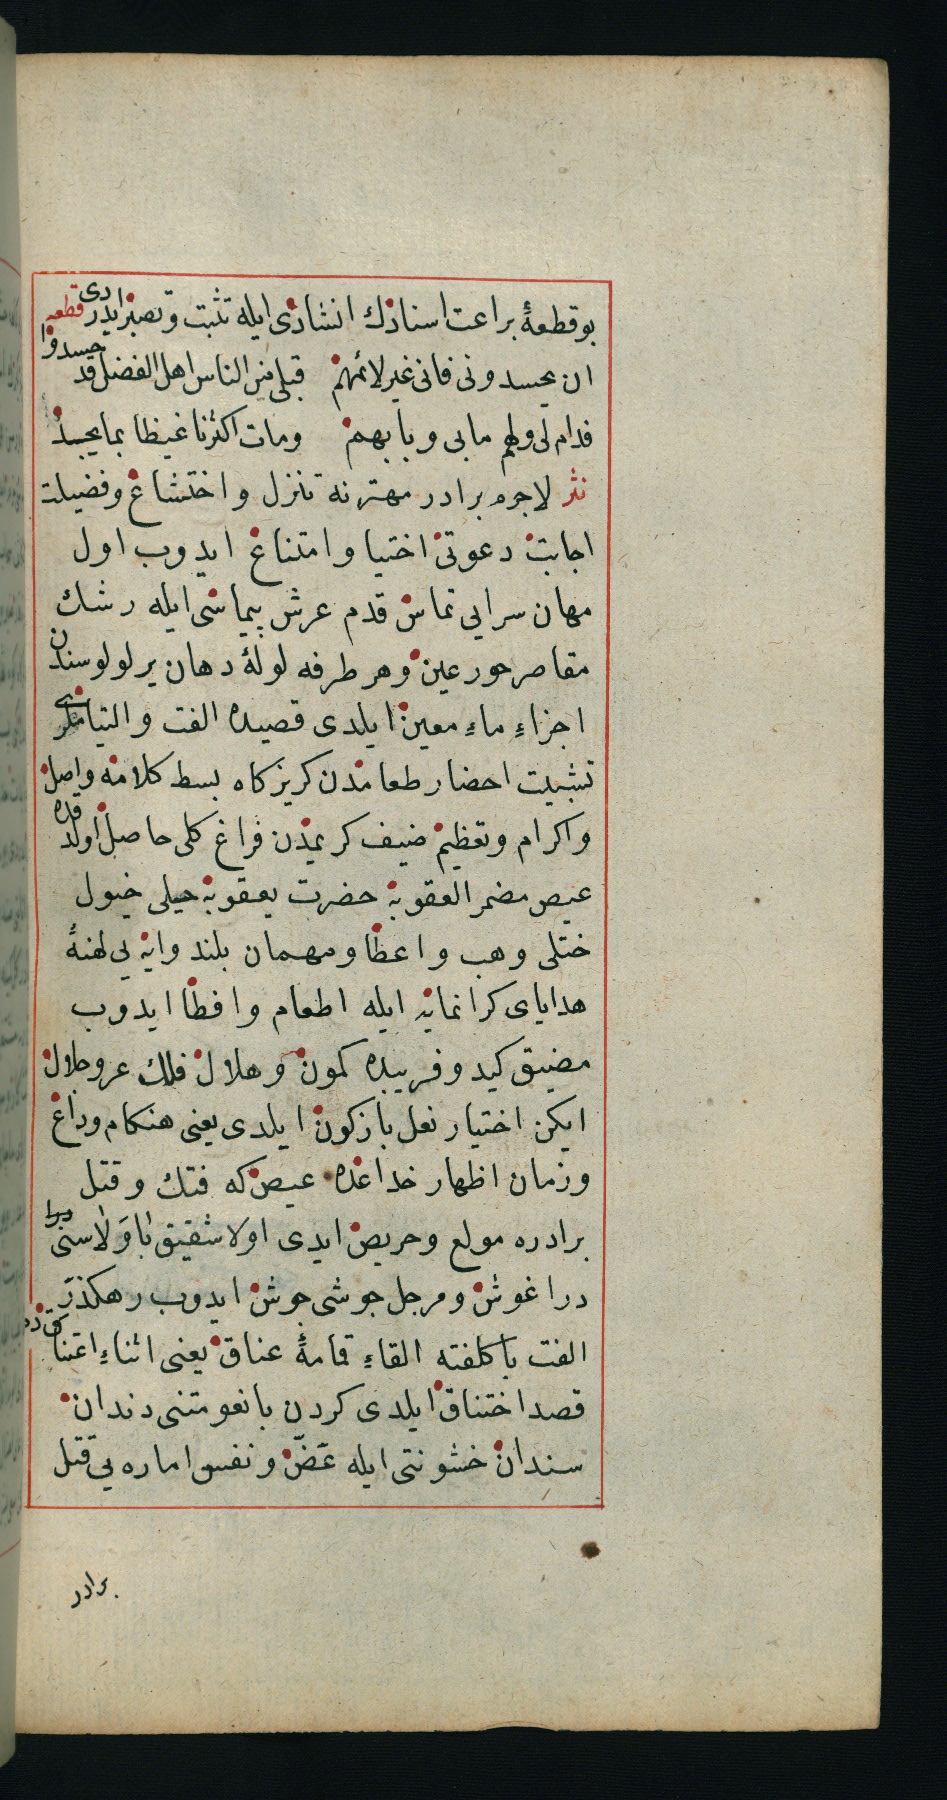 بو قطعهٔ براعت اسنادك انشادی ایله تثبت وتصبر ایدردی قطعه
ان یحسدونی فانی غیر لائمهم قبلی من الناس اهل الفضل قد حسدوا
فدام لی ولهم مابی وبابهم ومات اكثرنا غیظا بما یجد
نثر لاجرم برادر مهترنه تنزل واختشاع وفضیلت
اجابت دعوتن اختیا وامتناع ایدوب اول
مهان سرایی تماس قدم عرش پیماسی ایله رشك
مقاصر حور عین وهر طرفه لولهٔ دهان پر لولوسندن
اجزاء ماء معین ایلدی قصیده الفت والتیاملری
تشبیت احضار طعامدن كریزكاه بسط كلامه واصل
واكرام وتعظیم ضیف كریمدن فراغ كلی حاصل اولدقده
عیص مضمر العقوبه حضرت یعقوبه حیلی خیول
ختلی وهب واعطا ومهمان بلند وایه یی لهنهٔ
هدایای كرانمایه ایله اطعام وافطا ایدوب
مضیق كید وفریبده كمون وهلال فلك عز وجلال
ایكن اختیار نعل بازكون ایلدی یعنی هنكام وداع
وزمان اظهار خداعده عیص كه فتك وقتل
برادره مولع وحریص ایدی اولا شقیق با ولاسنی
دراغوش ومرجل جوشی جوش ایدوب رهكذر
الفت باكلفته القاء قمامهٔ عناق یعنی اثناء اعتناقده
قصد اختناق ایلدی كردن بانعومتنی دندان
سندان خشونتی ایله عض ونفس اماره یی قتل
برادر